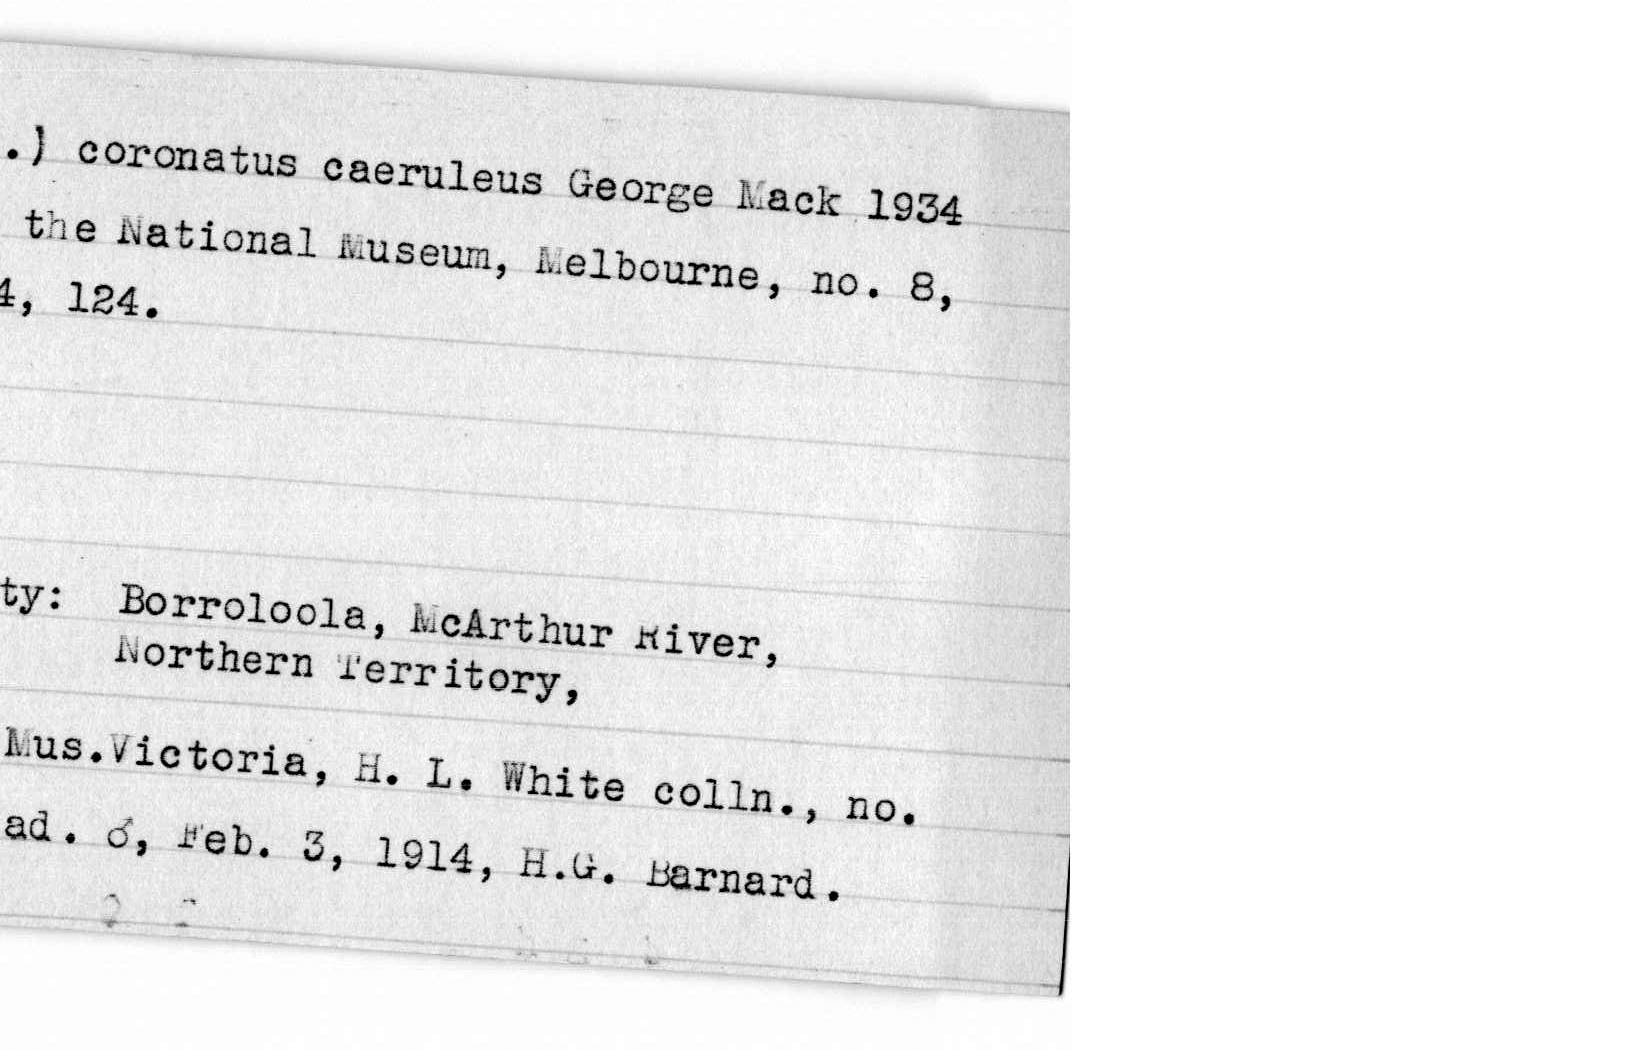 .) coronatus caeruleus George Mack 1934
the National Museum, Melbourne, no. 8,
4, 124.
ty: Borroloola, McArthur River,
Northern Territory,
Mus.Victoria, H. L. White colln., no.
ad. ♂, Feb. 3, 1914, H.G. Barnard.